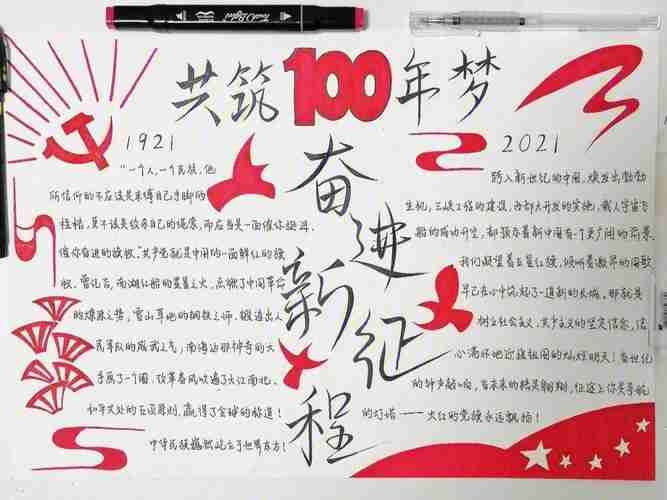 共筑100年梦
奋进新征程
1921
"一个人,一个民族,他
所信仰的不应该是束缚自己手脚的
桎梏,更不该是绞杀自己的绳索,而应当是一面催你挺进、
催你奋进的旗帜。"共产党就是中国的一面鲜红的旗
帜。曾记否,南湖红船的星星之火,点燃了中国革命
的燎原之势,雪山草地的钢铁之师,锻造出人
民军队的威武之气,南海边那神奇的大
手画了一个圈,改革春风吹遍了大江南北。
和平共处的五项原则,赢得了全球的称道!
中华民族巍然屹立于世界东方!
2021
跨入新世纪的中国,焕发出勃勃
生机,三峡工程的建设,西部大开发的实施,载人宇宙飞
船的成功升空,都预示着新中国有一个更广阔的前景。
我们凝望着五星红旗,倾听着激昂的国歌
早已在心中筑起了一道新的长城。那就是
树立社会主义、共产主义的坚定信念,信
心满怀地迎接祖国的灿烂明天!当世纪
的钟声敲响,当未来的精灵翱翔,征途上你是永恒
的灯塔——火红的党旗永远飘扬!